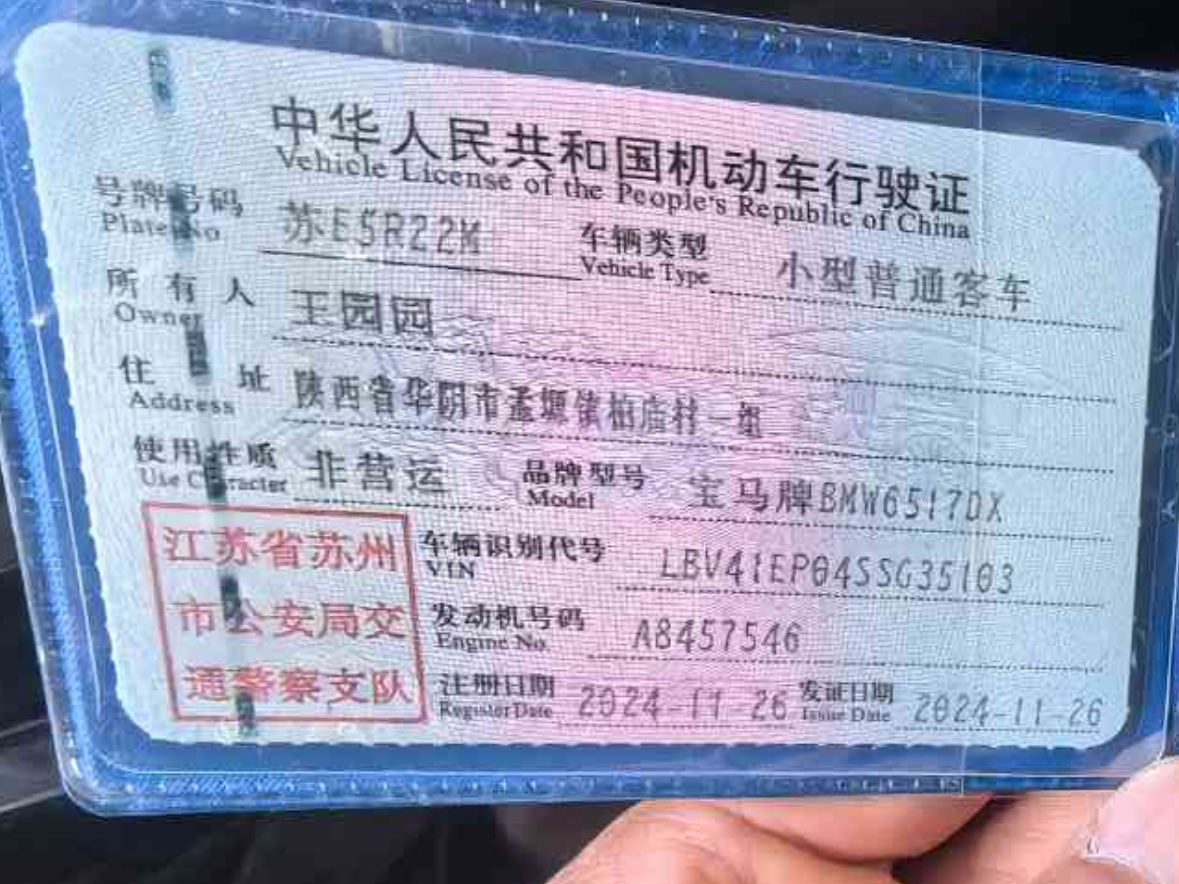 中华人民共和国机动车行驶证
Vehicle License of the People's Republic of China
号牌号码 苏E5R22M 车辆类型 小型普通客车
Plate No. Vehicle Type
所有人 王园园
Owner
住址 陕西省华阴市孟塬镇柏庙村一组
Address
使用性质 非营运 品牌型号 宝马牌BMW6517DX
Use Character Model
江苏省苏州
市公安局交
通警察支队
车辆识别代号 LBV41EP04SSG35103
VIN
发动机号码 A8457546
Engine No.
注册日期 2024-11-26 发证日期 2024-11-26
Register Date Issue Date